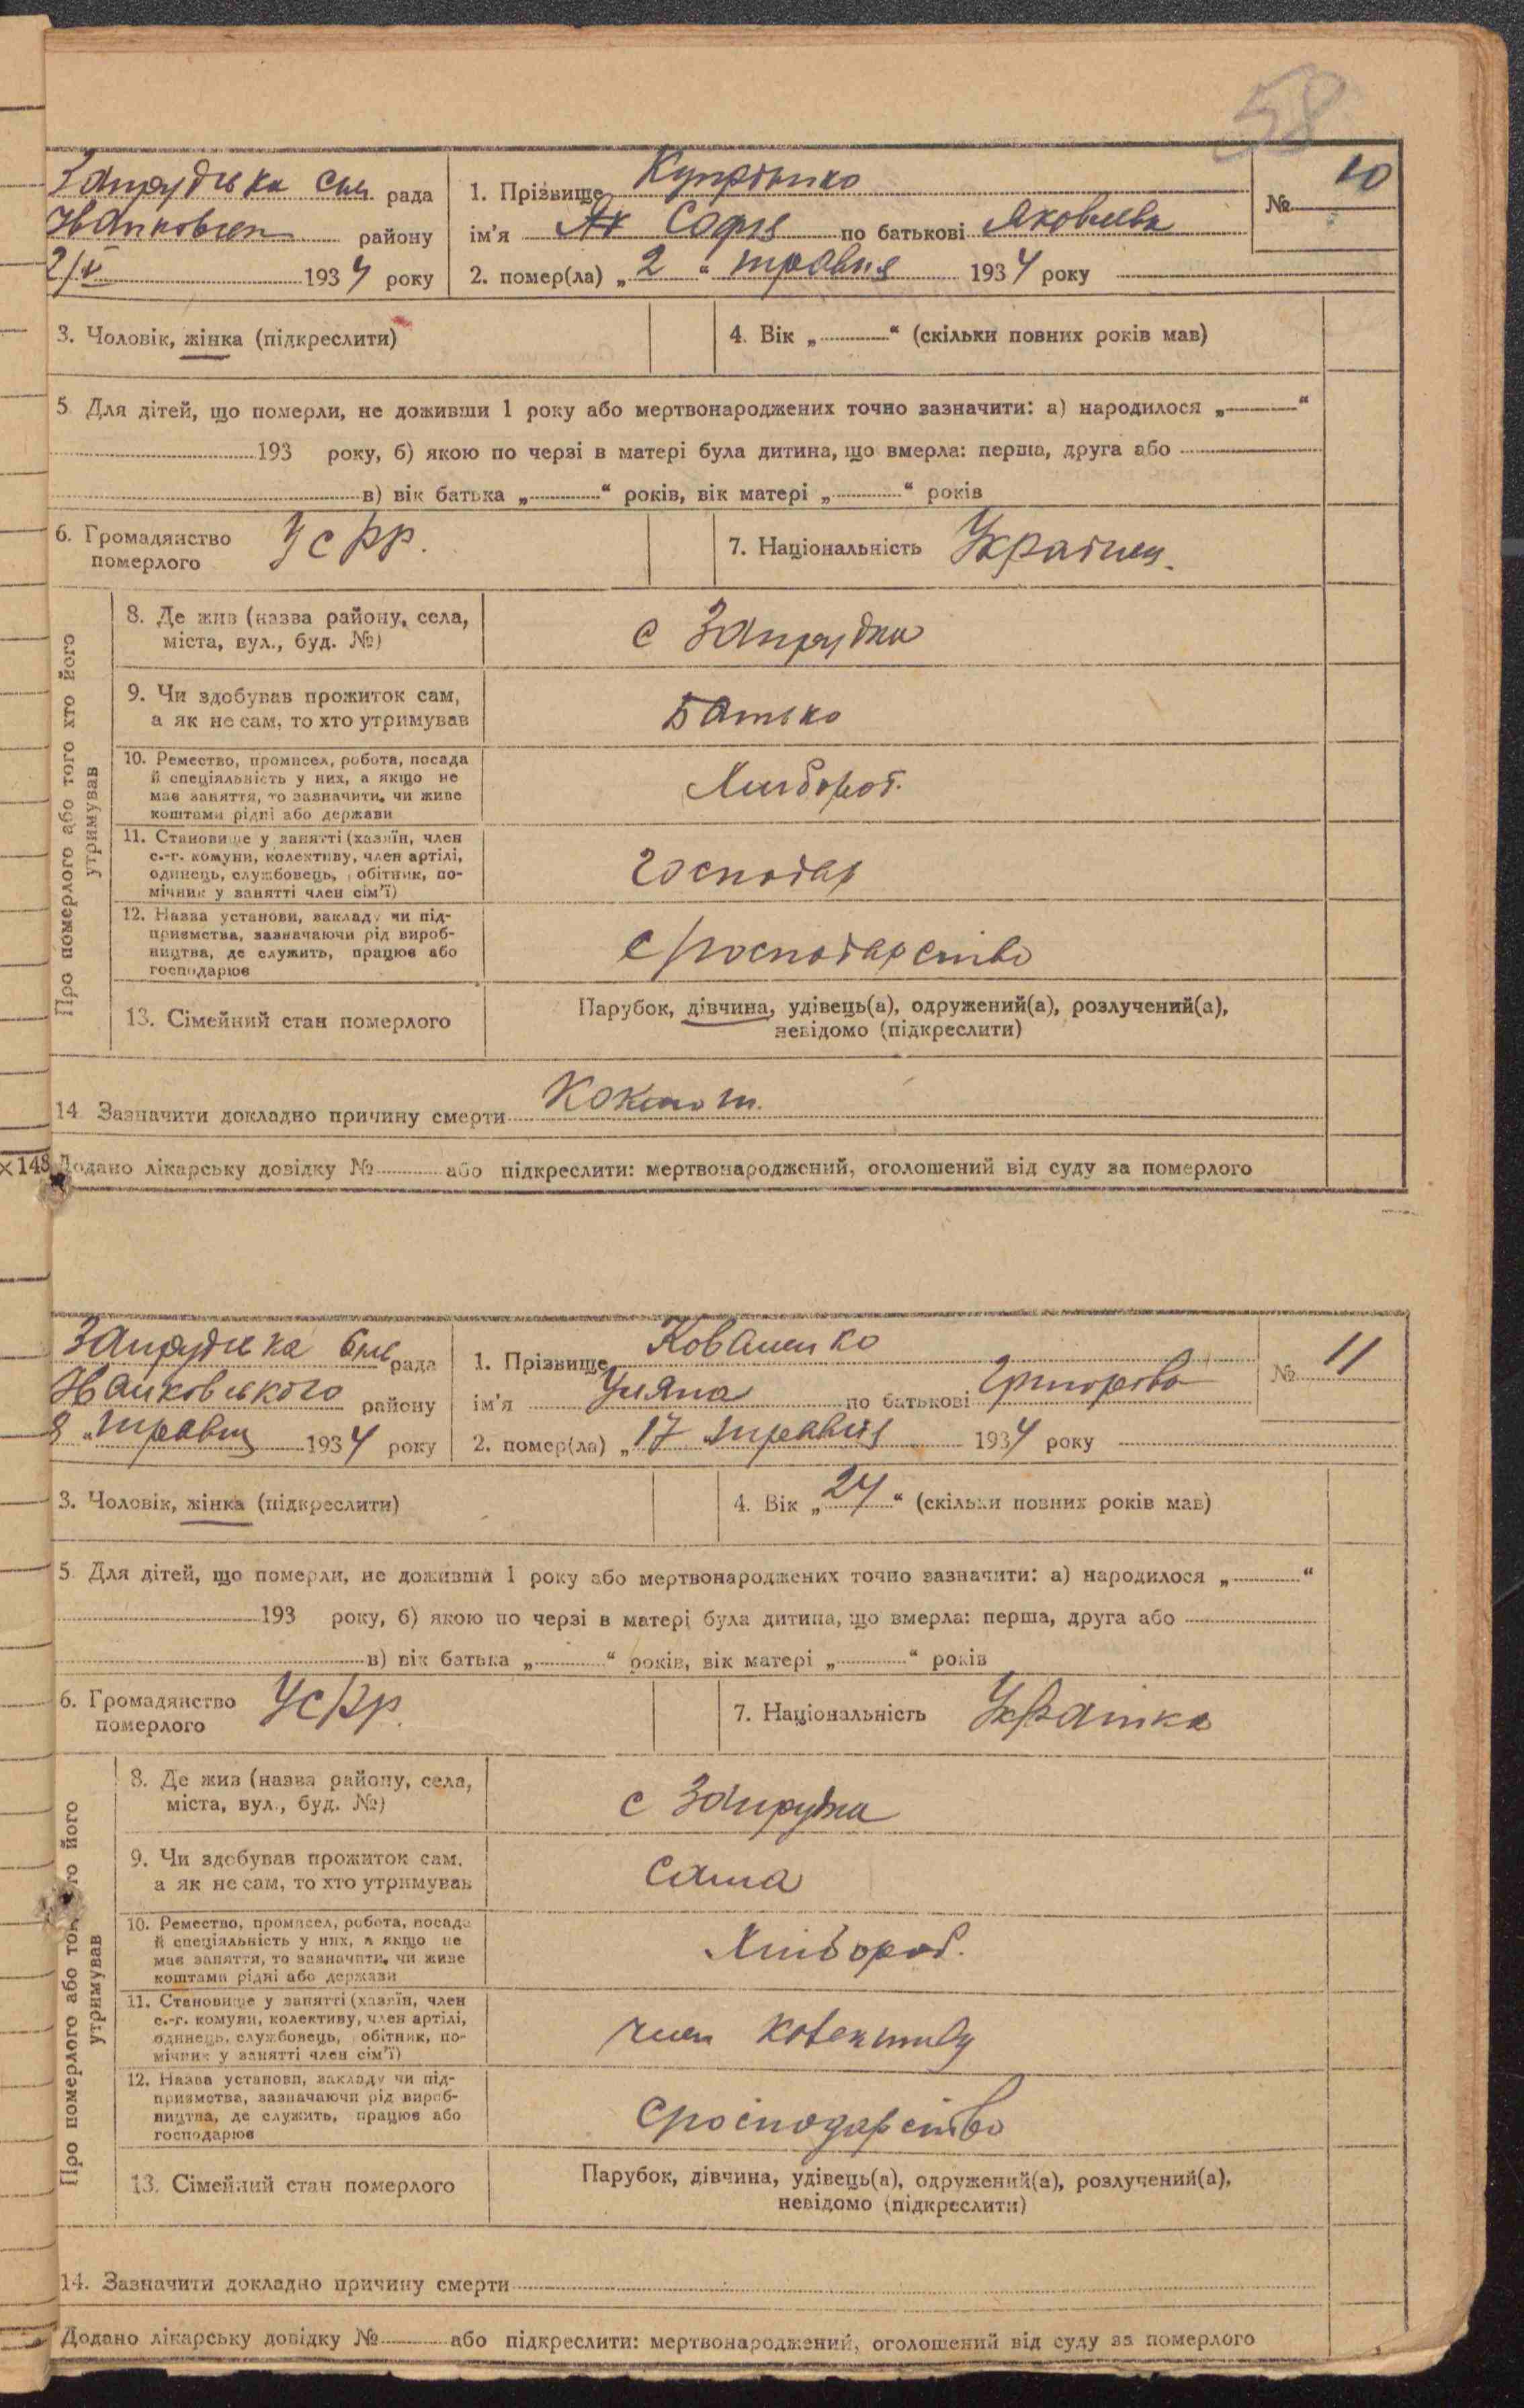 58
Запрудська сіл. рада
району
2/V 1934 року
1. Прізвище Купрієнко
№ 10
ім'я Софія по батькові Яковлевна
2. помер(ла) „2“ травня 1934 року
3. Чоловік, жінка (підкреслити)
4. Вік „ “ (скільки повних років мав)
5. Для дітей, що померли, не доживши 1 року або мертвонароджених точно зазначити: а) народилося „ “
193 року, б) якою по черзі в матері була дитина, що вмерла: перша, друга або
в) вік батька „ “ років, вік матері „ “ років
6. Громадянство
померлого УСРР.
7. Національність Україн.
Про померлого або того хто його
утримував
8. Де жив (назва району, села,
міста, вул., буд. №)
с Запрудка
9. Чи здобував прожиток сам,
а як не сам, то хто утримував
Батько
10. Ремество, промисел, робота, посада
й спеціяльність у них, а якщо не
має заняття, то зазначити, чи живе
коштами рідні або держави
Хлібороб.
11. Становище у занятті (хазяїн, член
с.-г. комуни, колективу, член артілі,
одинець, службовець, обітник, по-
мічник у занятті член сім'ї)
господар
12. Назва установи, закладу чи під-
приємства, зазначаючи рід вироб-
ництва, де служить, працює або
господарює
с/господарство
13. Сімейний стан померлого
Парубок, дівчина, удівець(а), одружений(а), розлучений(а),
невідомо (підкреслити)
14. Зазначити докладно причину смерти
×148
Додано лікарську довідку № або підкреслити: мертвонароджений, оголошений від суду за померлого
Запрудська рада
району
8 „травня 1934 року
1. Прізвище Коваленко
№ 11
ім'я Уляна по батькові Григорівна
2. помер(ла) „17 травня 1934 року
3. Чоловік, жінка (підкреслити)
4. Вік „24“ (скільки повних років мав)
5. Для дітей, що померли, не доживши 1 року або мертвонароджених точно зазначити: а) народилося „ “
193 року, б) якою по черзі в матері була дитина, що вмерла: перша, друга або
в) вік батька „ “ років, вік матері „ “ років
6. Громадянство
померлого УСРР.
7. Національність Українка
Про померлого або того його
утримував
8. Де жив (назва району, села,
міста, вул., буд. №)
с Запрудка
9. Чи здобував прожиток сам,
а як не сам, то хто утримував
Сама
10. Ремество, промисел, робота, посада
й спеціяльність у них, а якщо не
має заняття, то зазначити, чи живе
коштами рідні або держави
Хлібороб.
11. Становище у занятті (хазяїн, член
с.-г. комуни, колективу, член артілі,
одинець, службовець, обітник, по-
мічник у занятті член сім'ї)
член колективу
12. Назва установи, закладу чи під-
приємства, зазначаючи рід вироб-
ництва, де служить, працює або
господарює
с/господарство
13. Сімейний стан померлого
Парубок, дівчина, удівець(а), одружений(а), розлучений(а),
невідомо (підкреслити)
14. Зазначити докладно причину смерти
Додано лікарську довідку № або підкреслити: мертвонароджений, оголошений від суду за померлого